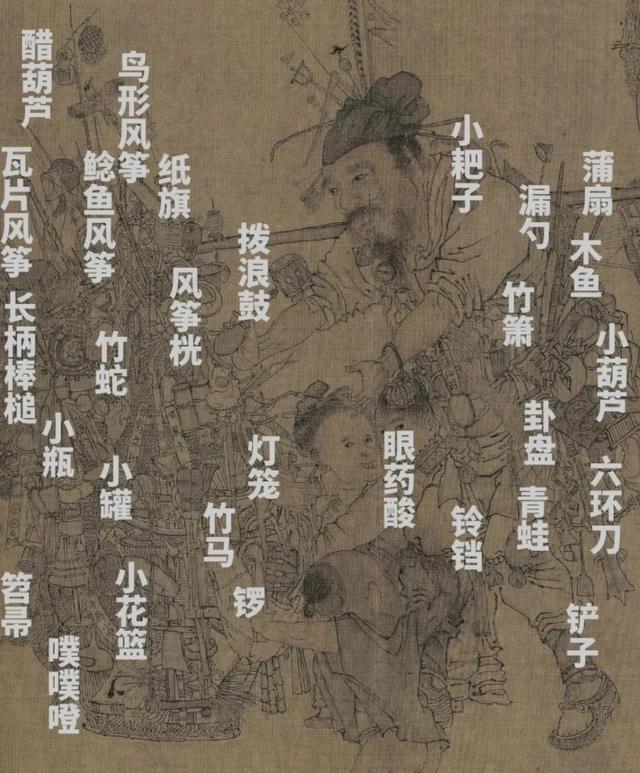 醋葫芦
鸟形风筝
瓦片风筝
鲶鱼风筝
纸旗
小耙子
蒲扇
漏勺
木鱼
拨浪鼓
风筝桄
竹箫
长柄棒槌
竹蛇
小葫芦
小瓶
小罐
灯笼
眼药酸
卦盘
六环刀
青蛙
铃铛
竹马
锣
笤帚
小花篮
噗噗噔
铲子